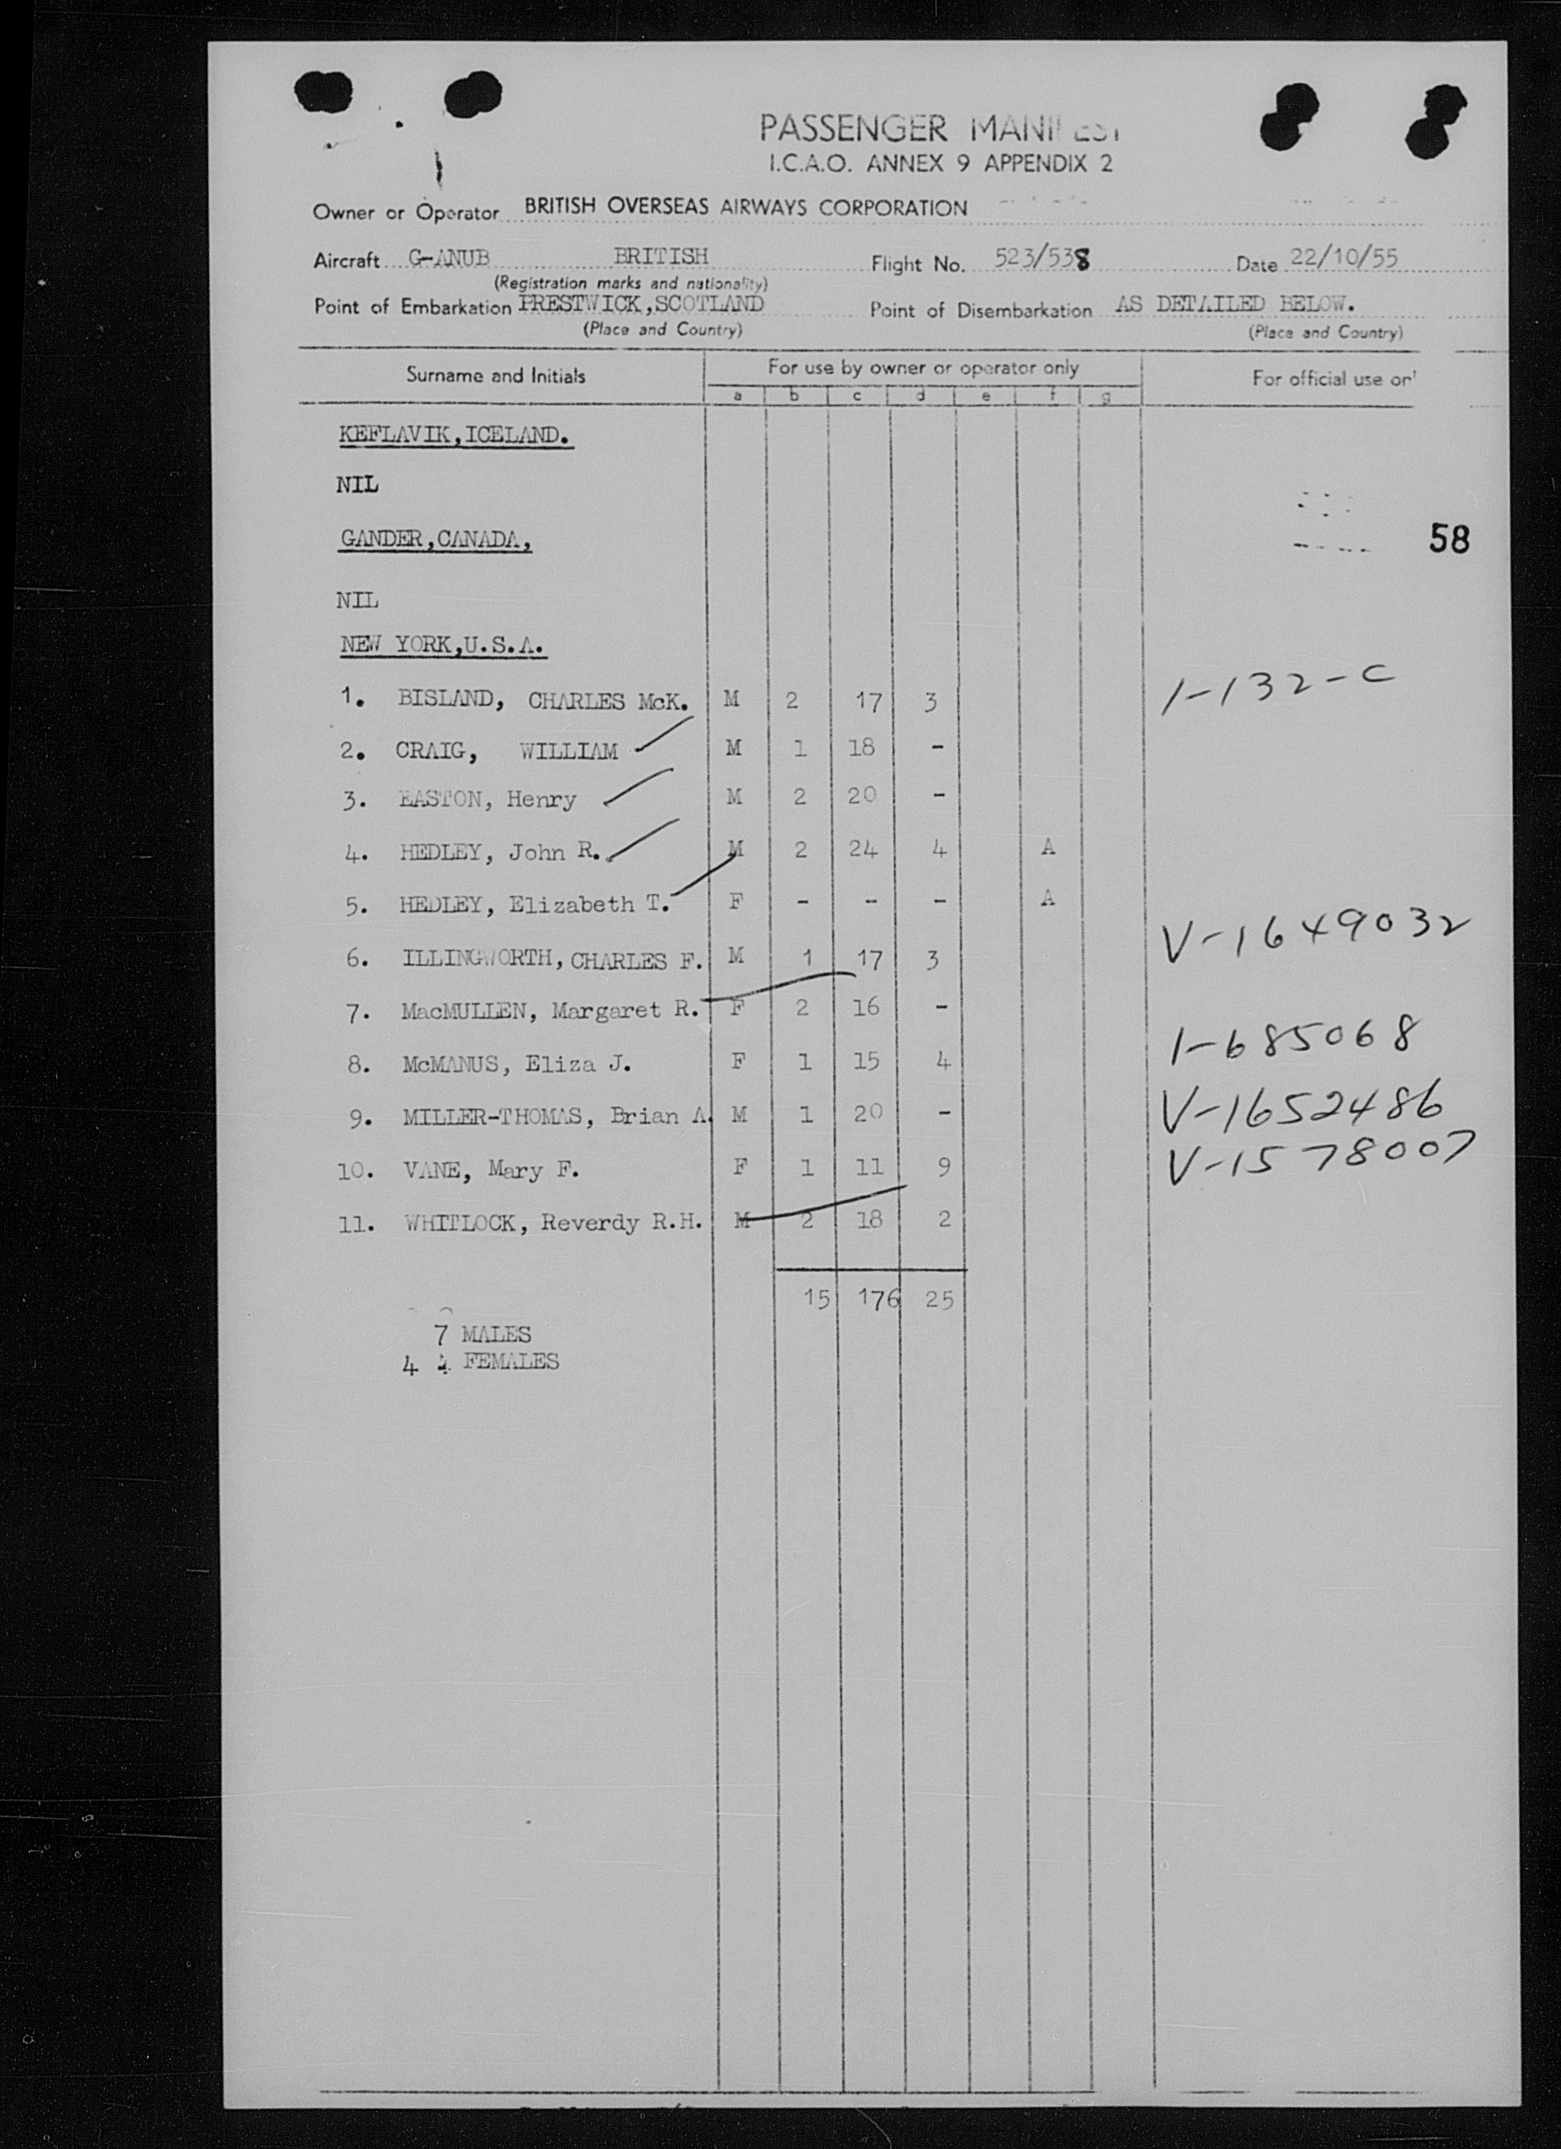 PASSENGER MANIFEST
I.C.A.O. ANNEX 9 APPENDIX 2
Owner or Operator BRITISH OVERSEAS AIRWAYS CORPORATION
Aircraft G-ANUB BRITISH Flight No. 523/538 Date 22/10/55
(Registration marks and nationality)
Point of Embarkation PRESTWICK,SCOTLAND Point of Disembarkation AS DETAILED BELOW.
(Place and Country) (Place and Country)
Surname and Initials For use by owner or operator only For official use on
a b c d e f g
KEFLAVIK,ICELAND.
NIL
GANDER,CANADA, 58
NIL
NEW YORK,U.S.A.
1. BISLAND, CHARLES McK. M 2 17 3 1-132-C
2. CRAIG, WILLIAM M 1 18 -
3. EASTON, Henry M 2 20 -
4. HEDLEY, John R. M 2 24 4 A
5. HEDLEY, Elizabeth T. F - - - A
6. ILLINGWORTH, CHARLES F. M 1 17 3 V-1649032
7. MacMULLEN, Margaret R. F 2 16 -
8. McMANUS, Eliza J. F 1 15 4 1-685068
9. MILLER-THOMAS, Brian A. M 1 20 - V-1652486
10. VANE, Mary F. F 1 11 9 V-1578007
11. WHITLOCK, Reverdy R.H. M 2 18 2
15 176 25
7 MALES
4 4 FEMALES